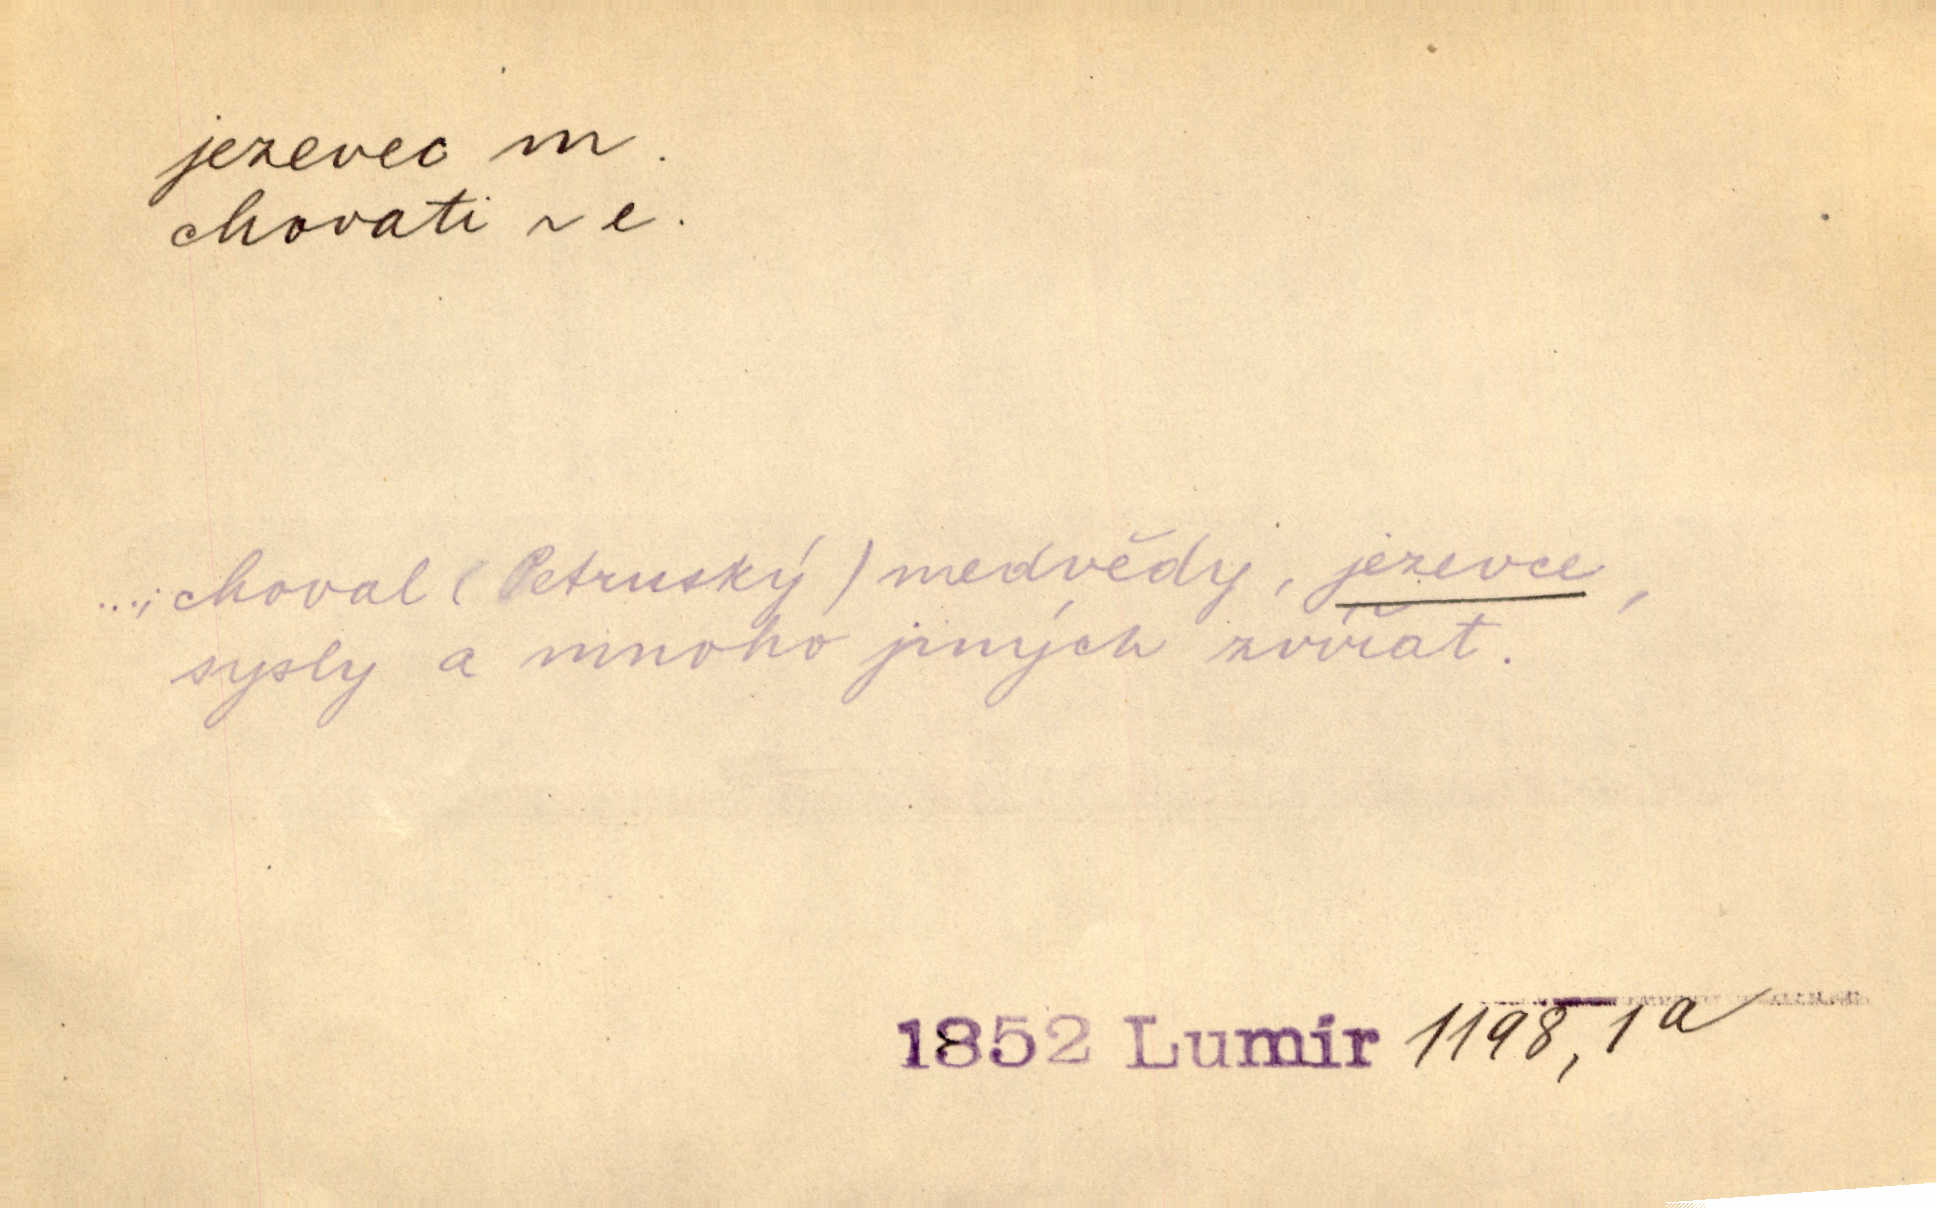 jezevec m.
chovati ~ e.
...; choval (Petruský) medvědy, jezevce,
sysly a mnoho jiných zvířat.
1852 Lumír 1198, 1a